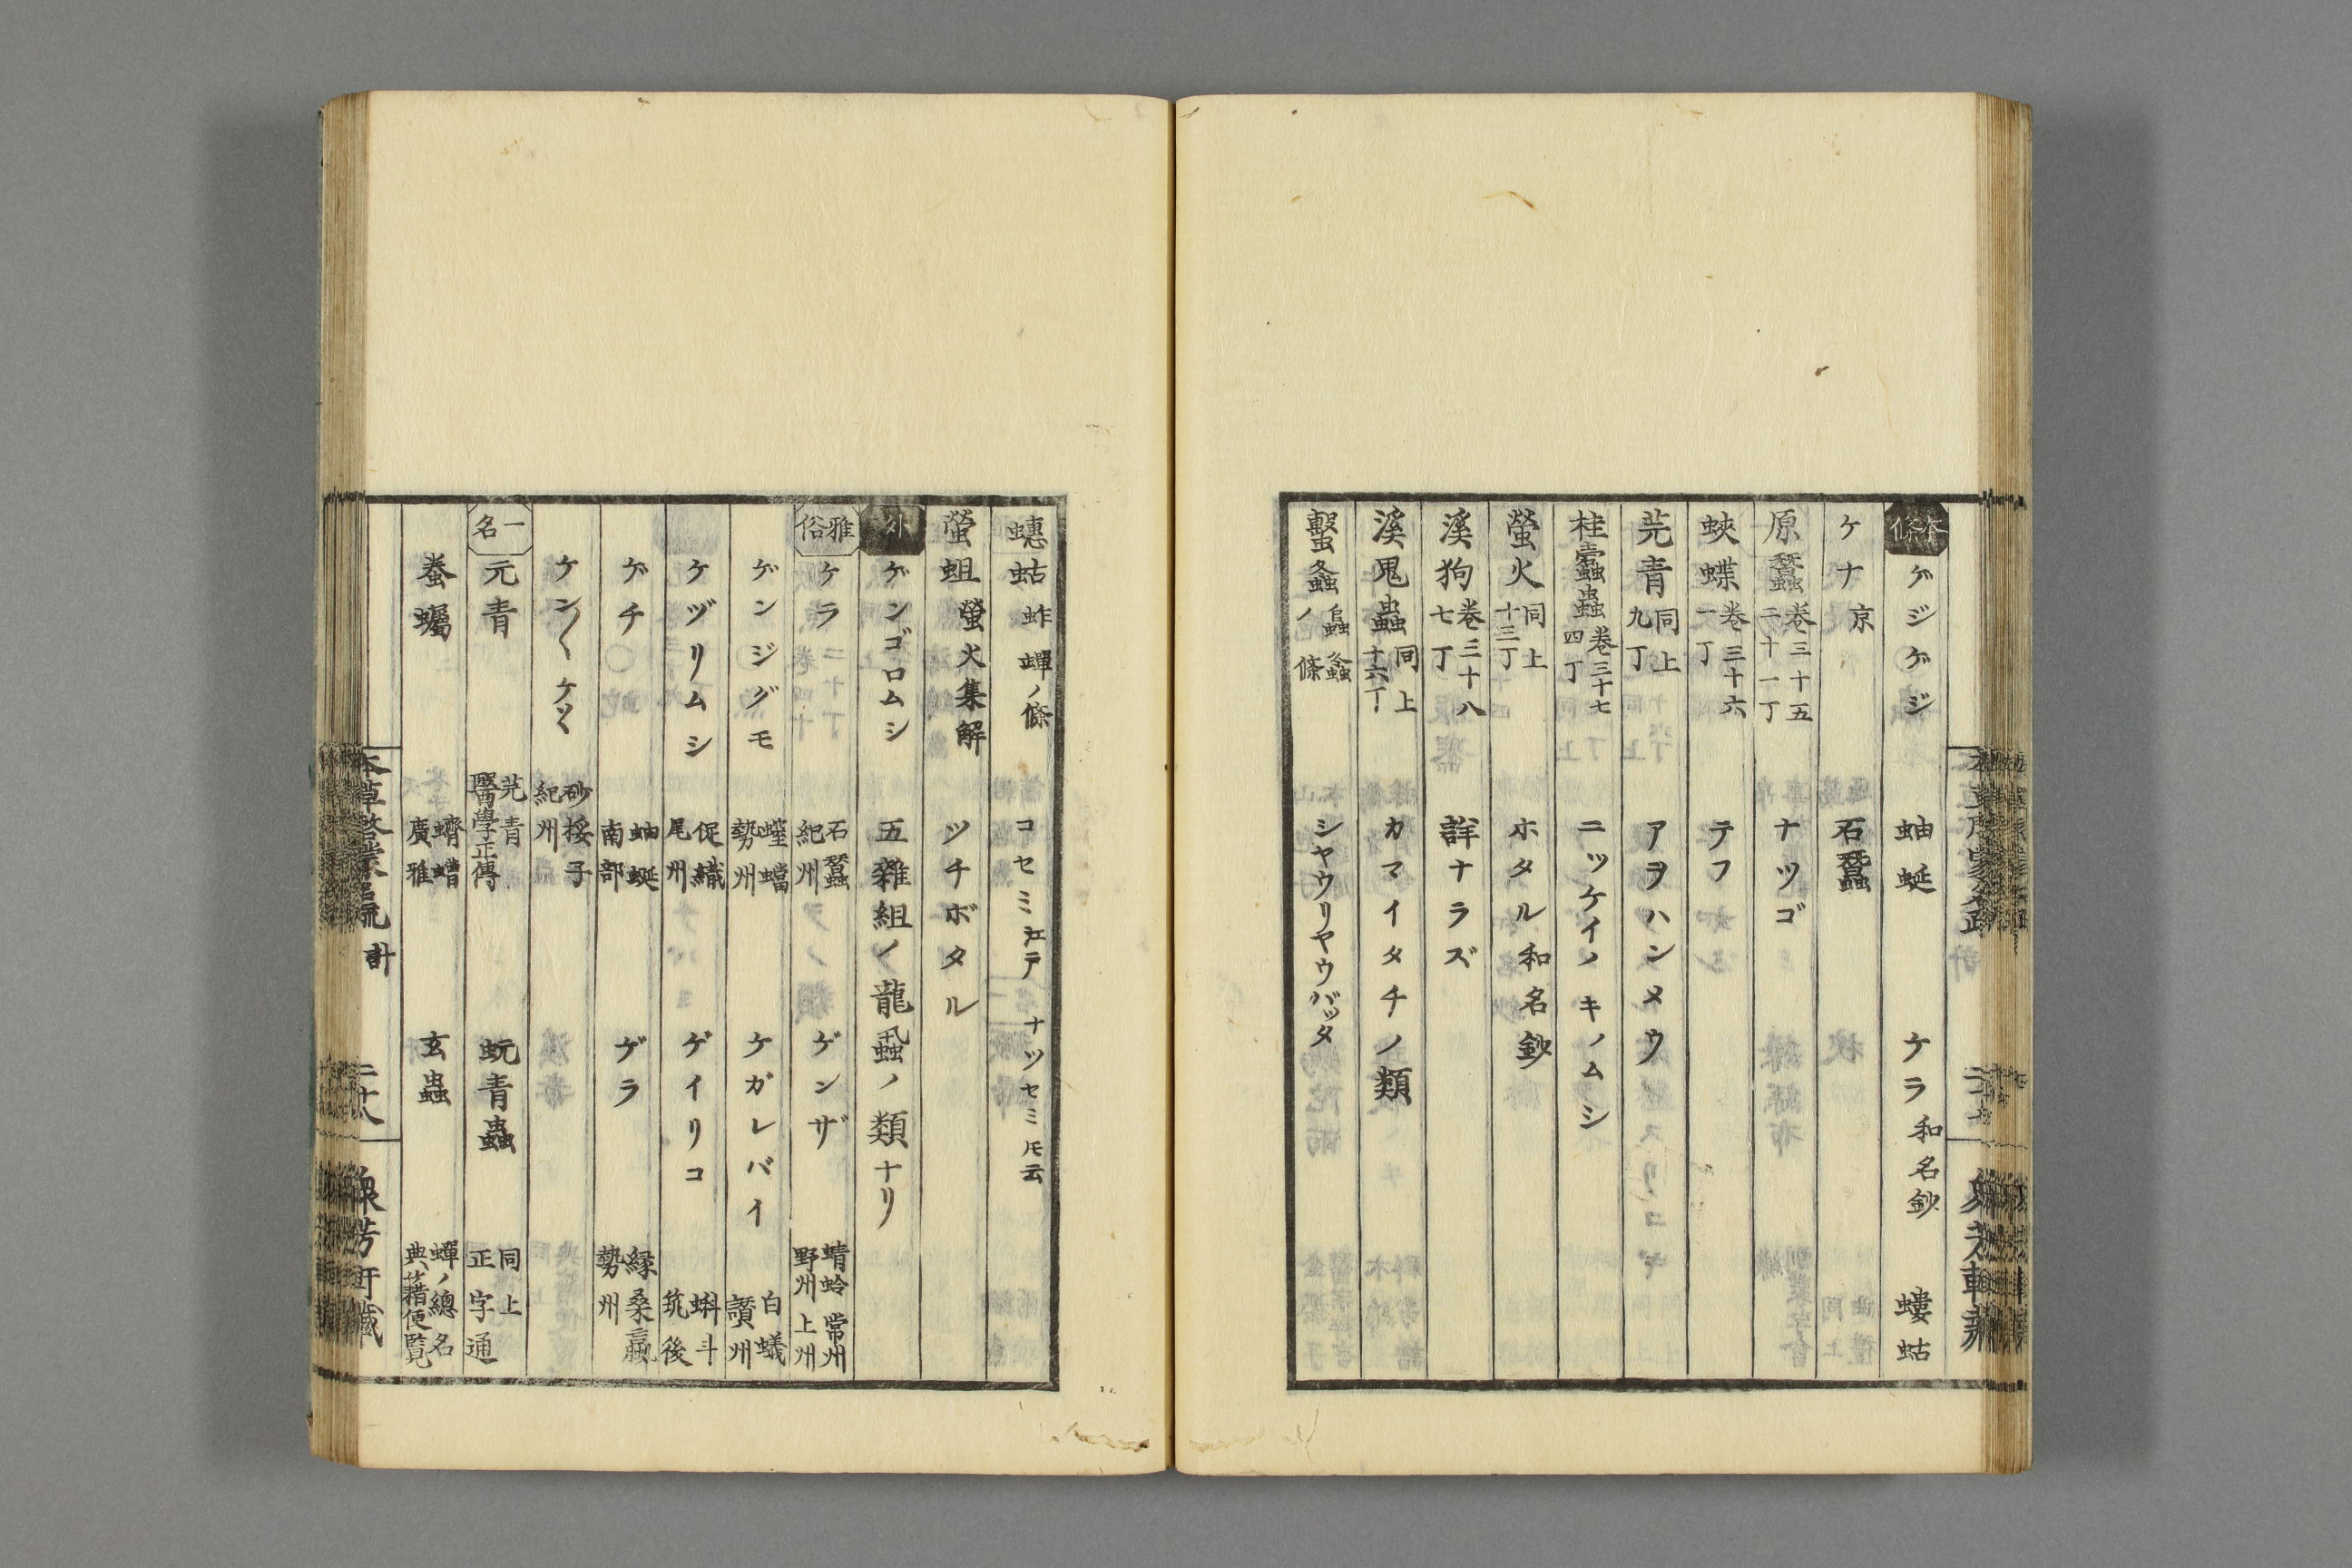 本條 ゲジゲジ 蚰蜒 ケラ 和名鈔 螻蛄
ケナ 京 石蠶
原蠶 卷三十五 二十一丁 ナツゴ
蛺蝶 卷三十六 一丁 テフ
芫青 同上 九丁 アヲハンメウ
桂蠹蟲 卷三十七 四丁 ニツケイノキノムシ
螢火 同上 十三丁 ホタル 和名鈔
溪狗 卷三十八 七丁 詳ナラズ
溪鬼蟲 同上 十六丁 カマイタチノ類
蟿螽 𧒂螽ノ條 シヤウリヤウバッタ
蟪蛄 蚱蟬ノ條 コセミ 江戸 ナツセミ 𪜈云
螢蛆 螢火集解 ツチボタル
外 ゲンゴロムシ 五雜組ノ龍蝨ノ類ナリ
雅俗 ケラ 石蠶 紀州 ゲンザ 蜻蛉 常州 野州 上州
ゲンジグモ 螲蟷 勢州 ケガレバイ 白蟻 讃州
ケヅリムシ 促織 尾州 ゲイリコ 蝌斗 筑後
ゲチ 蚰蜒 南部 ゲラ 緣桑蠃 勢州
ケン〱ケツ〱 砂挼子 紀州
一名 元青 芫青 醫學正傳 蚖青蟲 同上 正字通
蚕蠾 蠐螬 廣雅 玄蟲 蟬ノ總名 典藉便覧
本草啓蒙名疏 計 二十八 衆芳軒藏